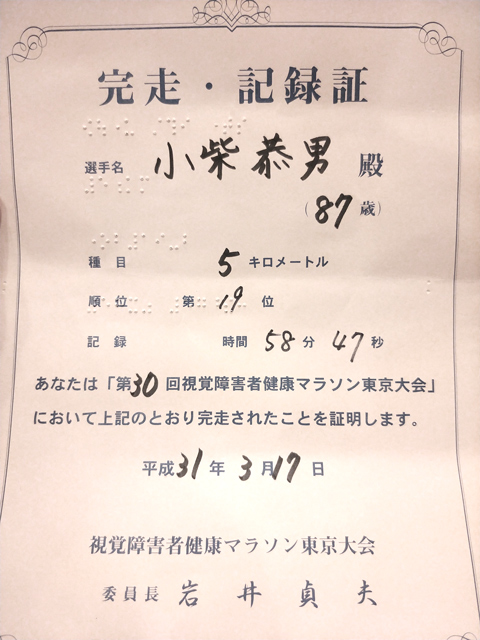 完走・記録証
選手名 小柴恭男 殿
(87歳)
種目 5 キロメートル
順位 第19位
記録 時間58分47秒
あなたは「第30回視覚障害者健康マラソン東京大会」
において上記のとおり完走されたことを証明します。
平成31年3月17日
視覚障害者健康マラソン東京大会
委員長 岩井貞夫